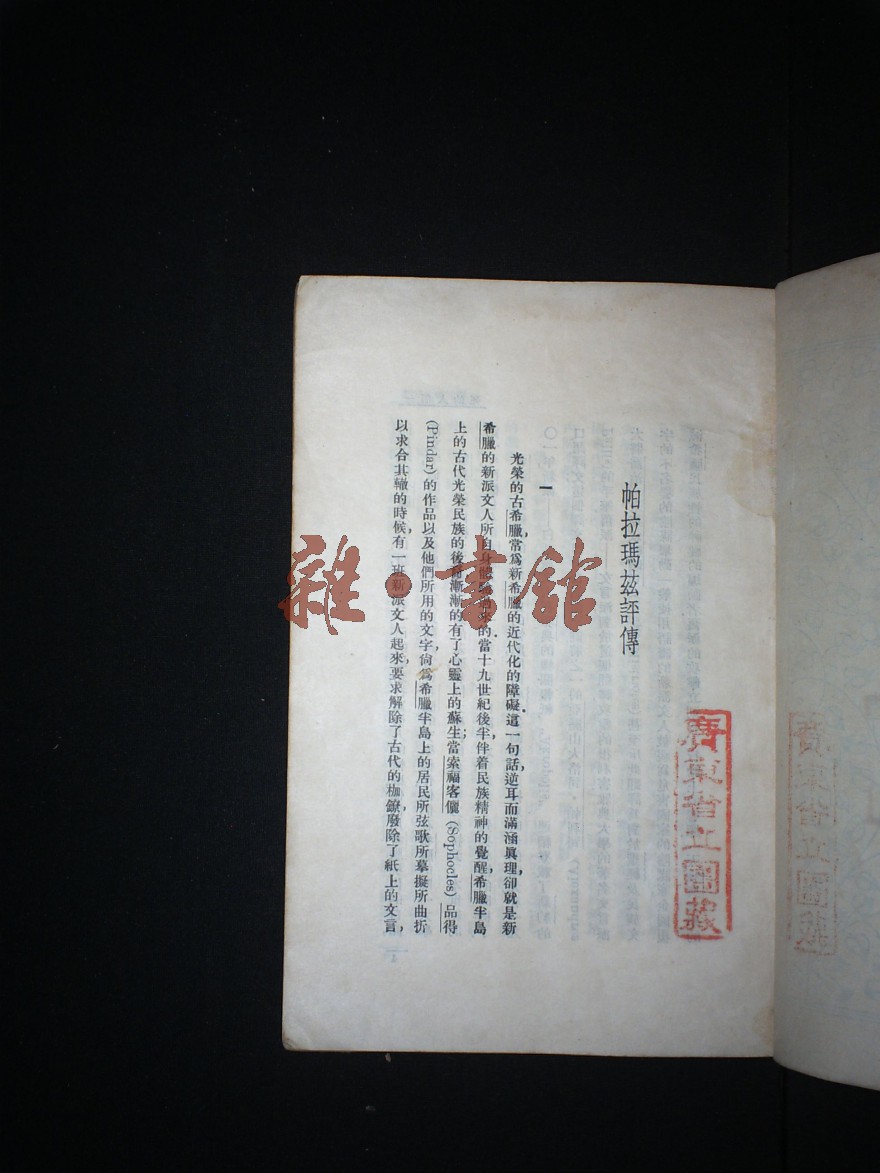 帕拉瑪茲評傳
一
光榮的古希臘,常爲新希臘的近代化的障礙.這一句話,逆耳而滿涵眞理,卻就是新
希臘的新派文人所自身體驗過來的.當十九世紀後半,伴着民族精神的覺醒,希臘半島
上的古代光榮民族的後裔漸漸的有了心靈上的蘇生;當索福客儷(Sophocles)品得
(Pindar)的作品以及他們所用的文字,尙爲希臘半島上的居民所弦歌所摹擬所曲折
以求合其轍的時候,有一班新派文人起來,要求解除了古代的枷鐐,廢除了紙上的文言,
廣東省立圖藏
雜·書館